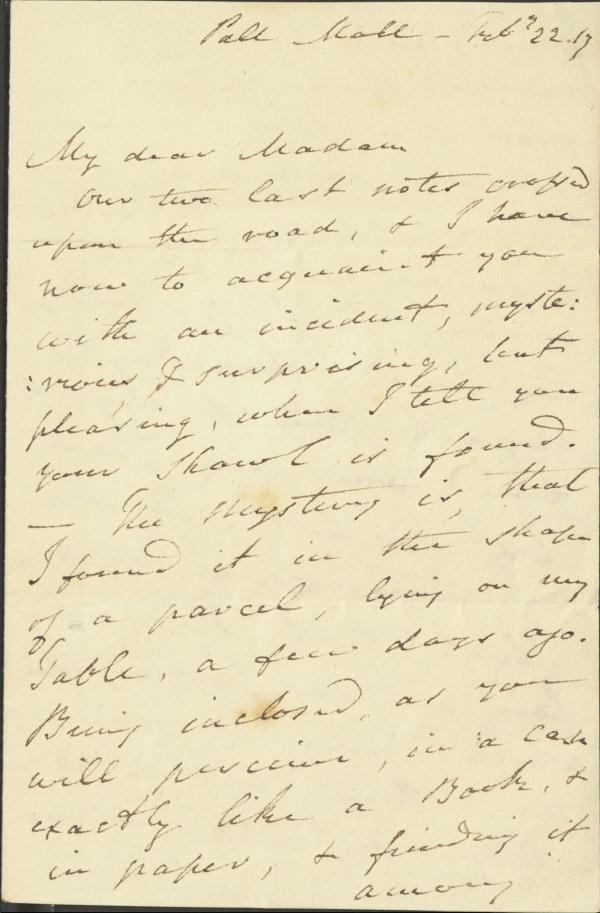 Pall Mall - Feby 22. 17
My dear Madam
Our two last notes crossed
upon the road, & I have
now to acquaint you
with an incident, myste:
:rious & surprising, but
pleasing, when I tell you
your Shawl is found.
— The mystery is, that
I found it in the shape
of a parcel, lying on my
Table, a few days ago.
Being inclosed, as you
will perceive, in a case
exactly like a Book, &
in paper, & finding it
among